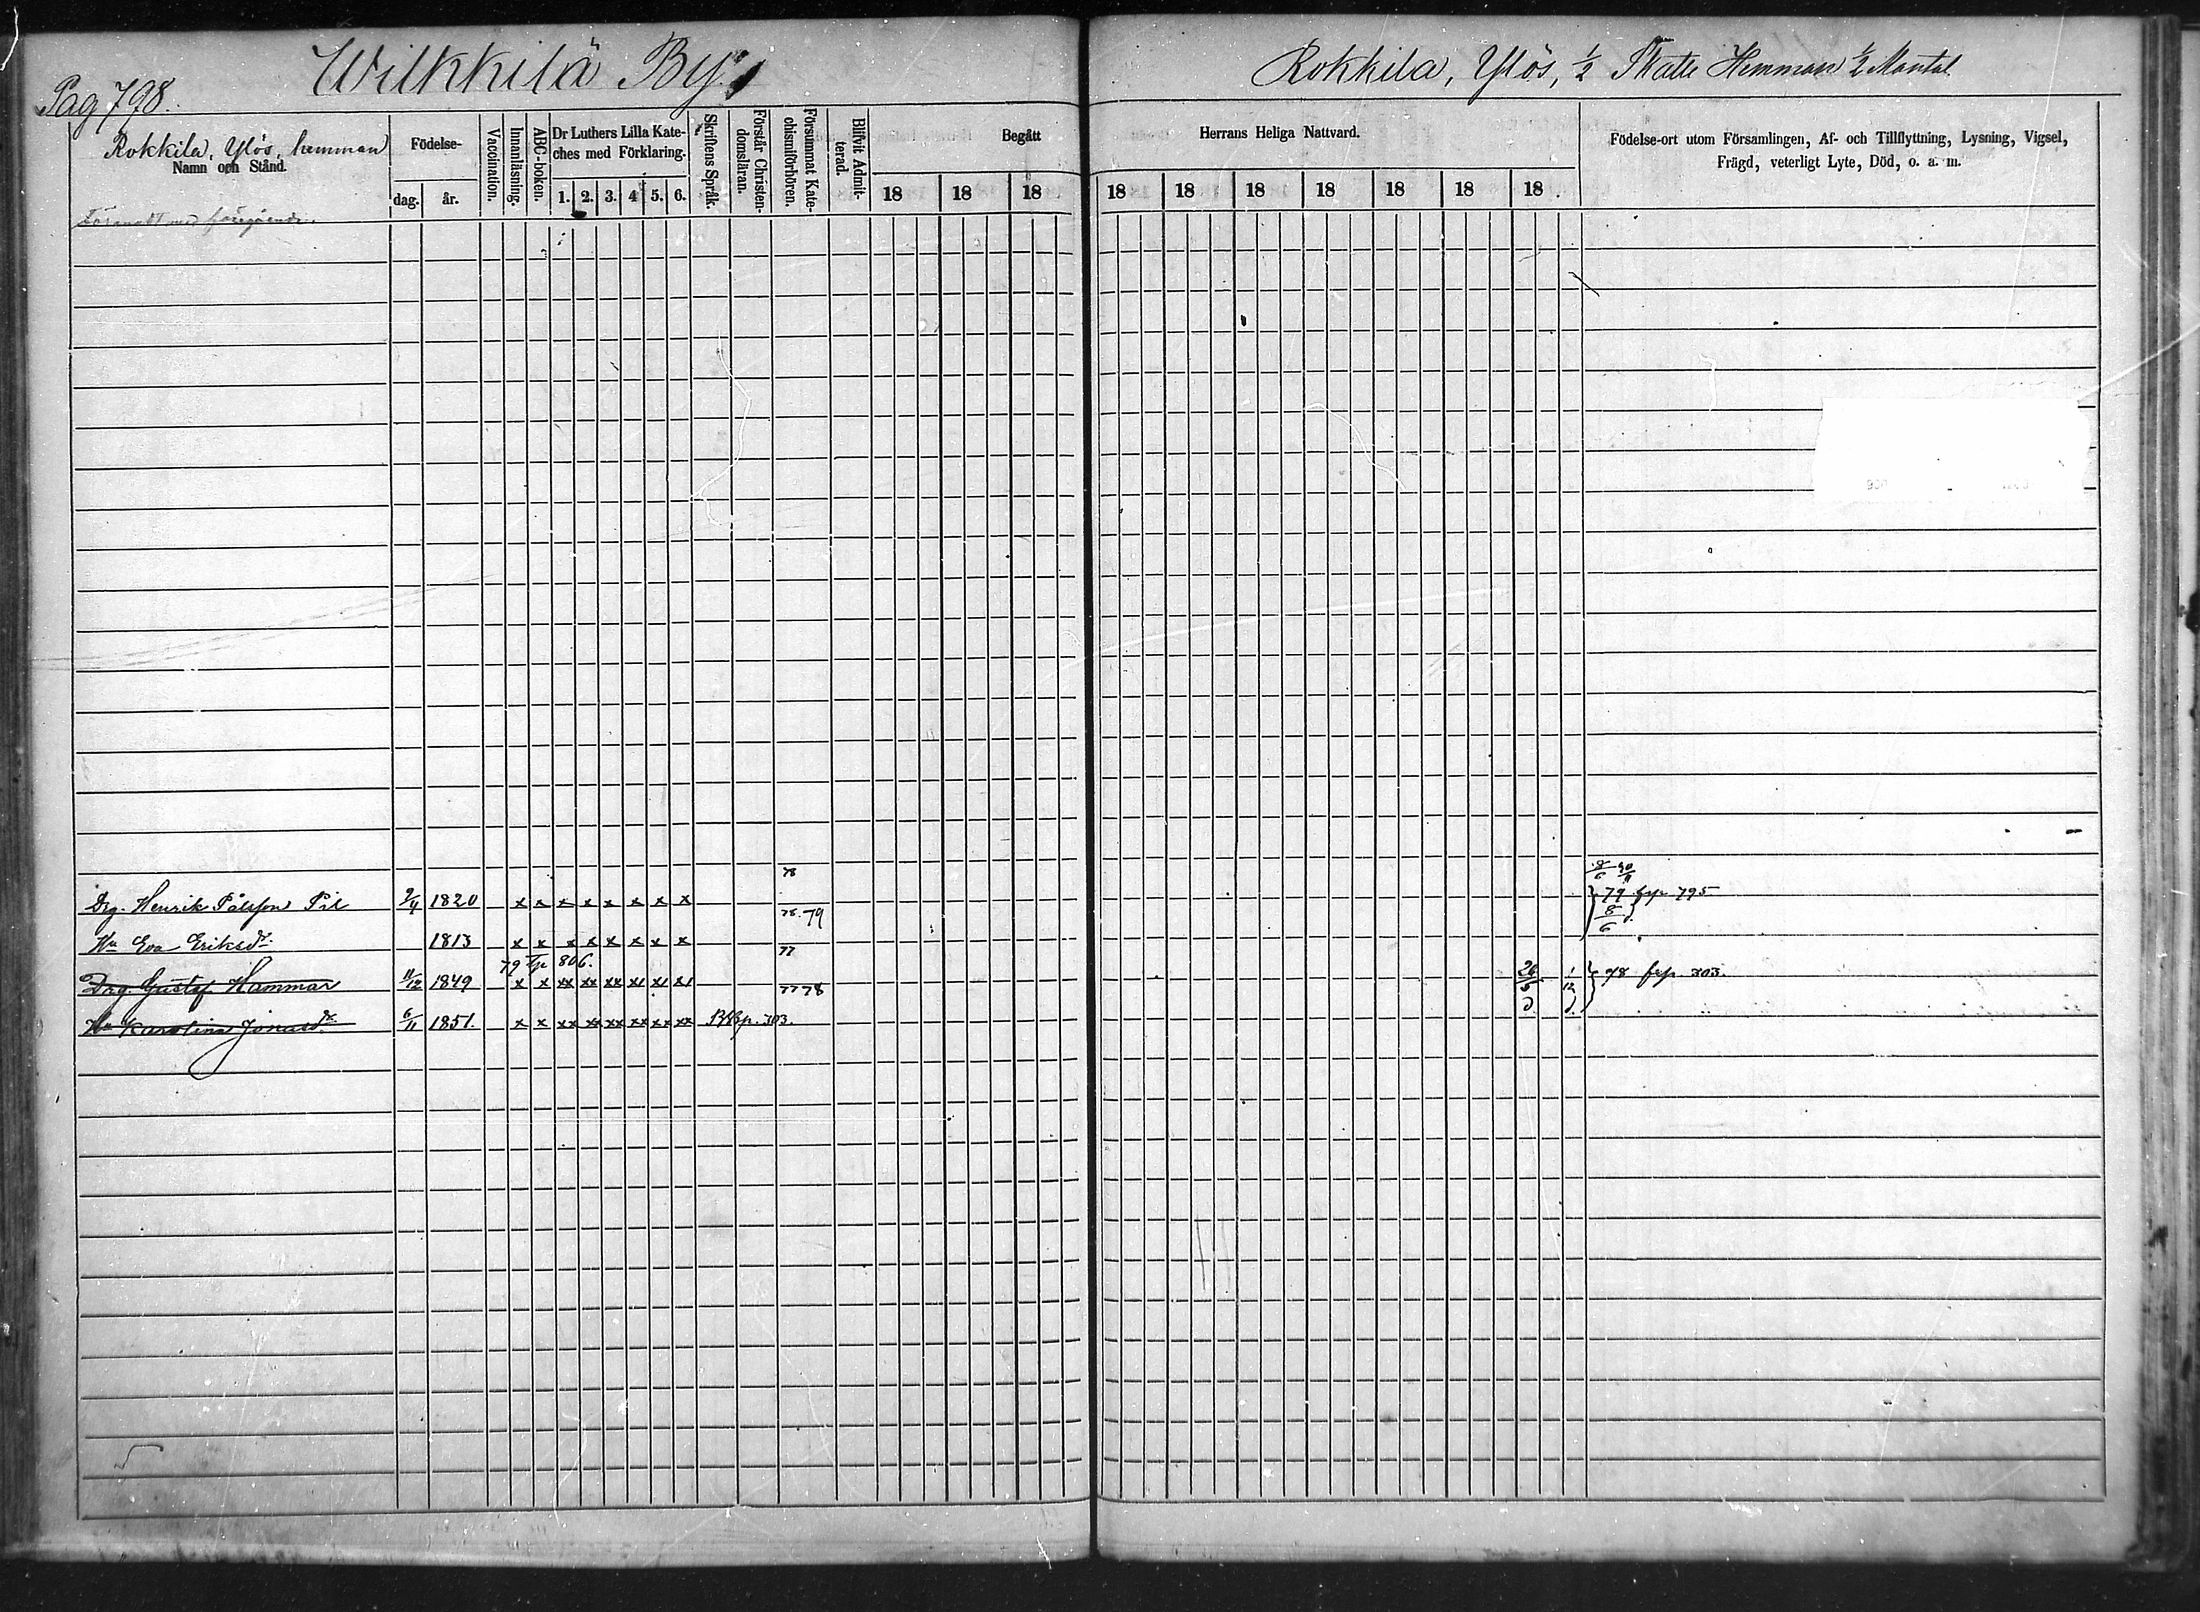 Wilkkilä By,
Rokkila, Ylös, 1/2 Skatte Hemman 1/2 Mantal
Pag 798.
Rokkila, Ylös, hemman
Namn och Stånd.
Födelse-
dag. år.
Vaccination.
Innanläsning.
ABC-boken.
Dr Luthers Lilla Kate-
ches med Förklaring.
1. 2. 3. 4 5. 6.
Skriftens Språk.
Förstår Christen-
domsläran.
Försummat Kate-
chismiförhören.
Blifvit Admit-
terad.
Begått
Herrans Heliga Nattvard.
18 18 18 18 18 18 18 18 18 18
Födelse-ort utom Församlingen, Af- och Tillflyttning, Lysning, Vigsel,
Frägd, veterligt Lyte, Död, o. a. m.
78
Drg. Henrik Pålsson Pil 9/4 1820 x x x x x x x x 78. 79 79 frp 795
8/6
Hu Eva Eriksdr. 1813 x x x x x x x x 77
79 Tp 806.
Drg. Gustaf Hammar 11/12 1849 x x xx xx xx xx xx xx 77 78 26/5 1/12 78 frp. 303.
Hu Karolina Jonasdr. 6/11 1851. x x xx xx xx xx xx xx p. 303. d. d.